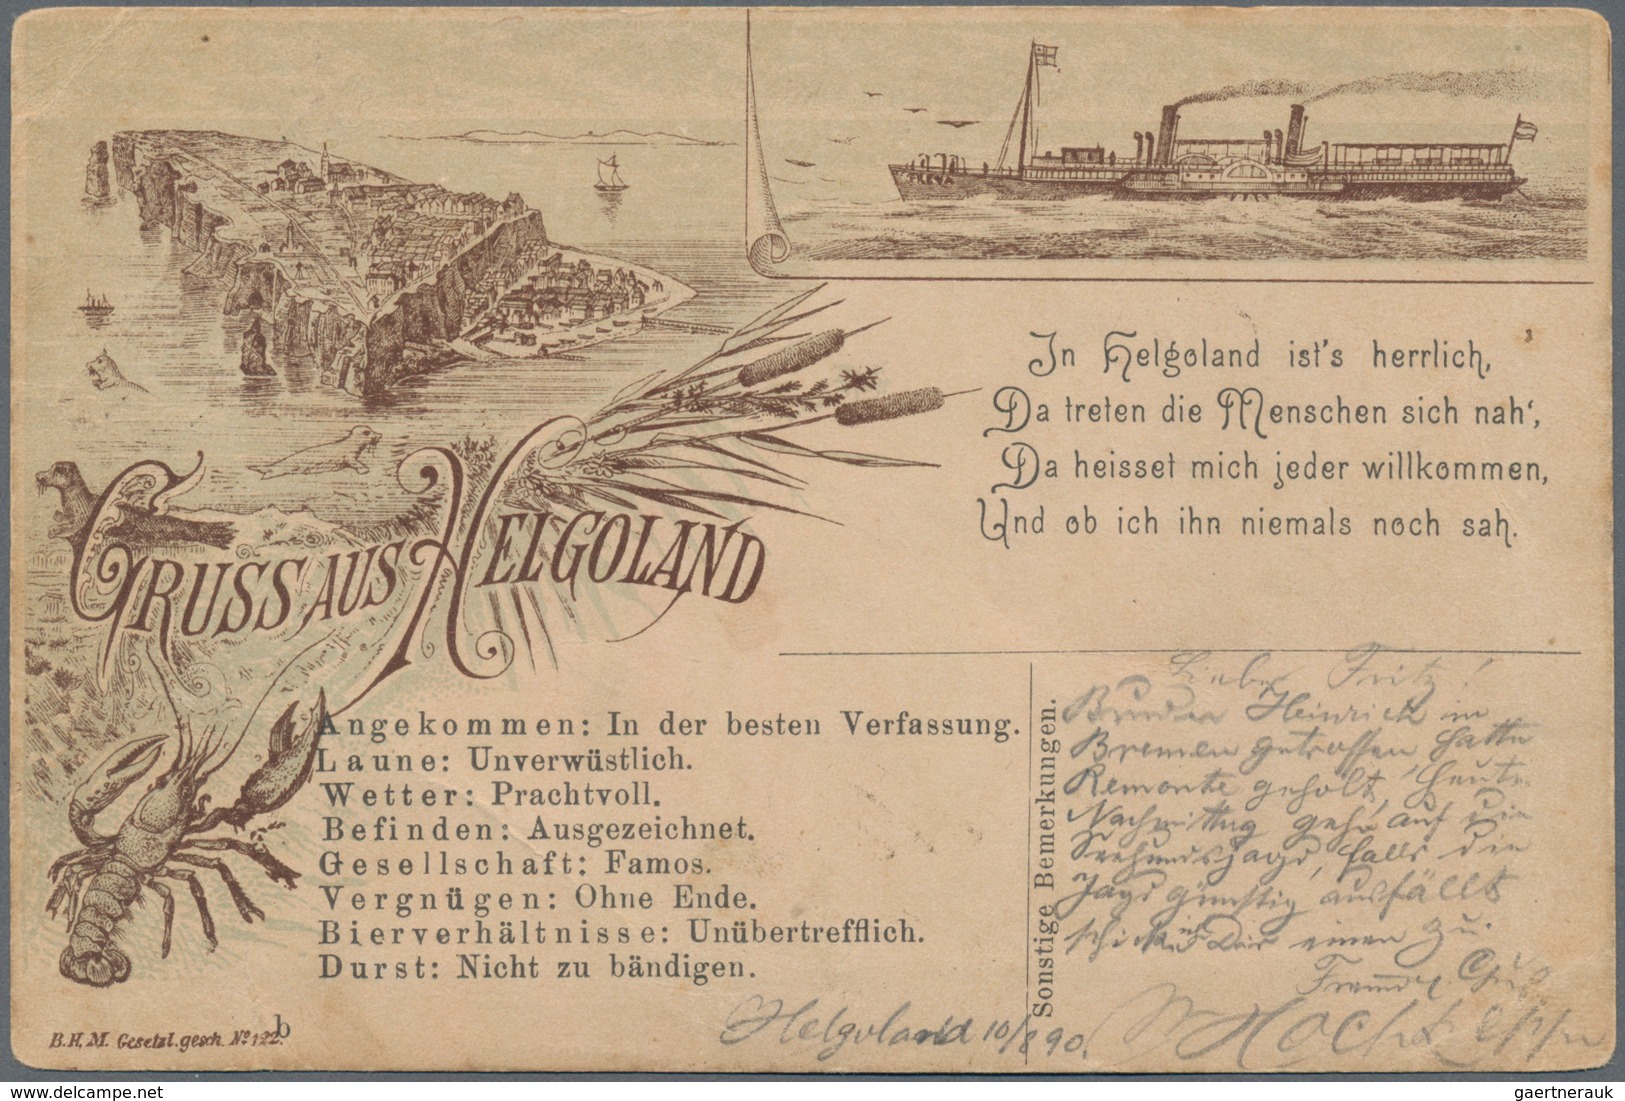 FREYA
In Helgoland ist's herrlich,
Da treten die Menschen sich nah',
Da heisset mich jeder willkommen,
Und ob ich ihn niemals noch sah.
GRUSS AUS HELGOLAND
Angekommen: In der besten Verfassung.
Laune: Unverwüstlich.
Wetter: Prachtvoll.
Befinden: Ausgezeichnet.
Gesellschaft: Famos.
Vergnügen: Ohne Ende.
Bierverhältnisse: Unübertrefflich.
Durst: Nicht zu bändigen.
Sonstige Bemerkungen.
Lieber Fritz!
Bruder Heinrich in
Bremen getroffen, hatte
Remonte geholt, heute
Nachmittag geh' auf die
Seehundsjagd, falls die
Jagd günstig ausfällt
schick ich Dir einen zu.
Helgoland 10/8 90.
B.H.M. Gesetzl. gesch. No 122b
delcampe.net
gaertnerauk